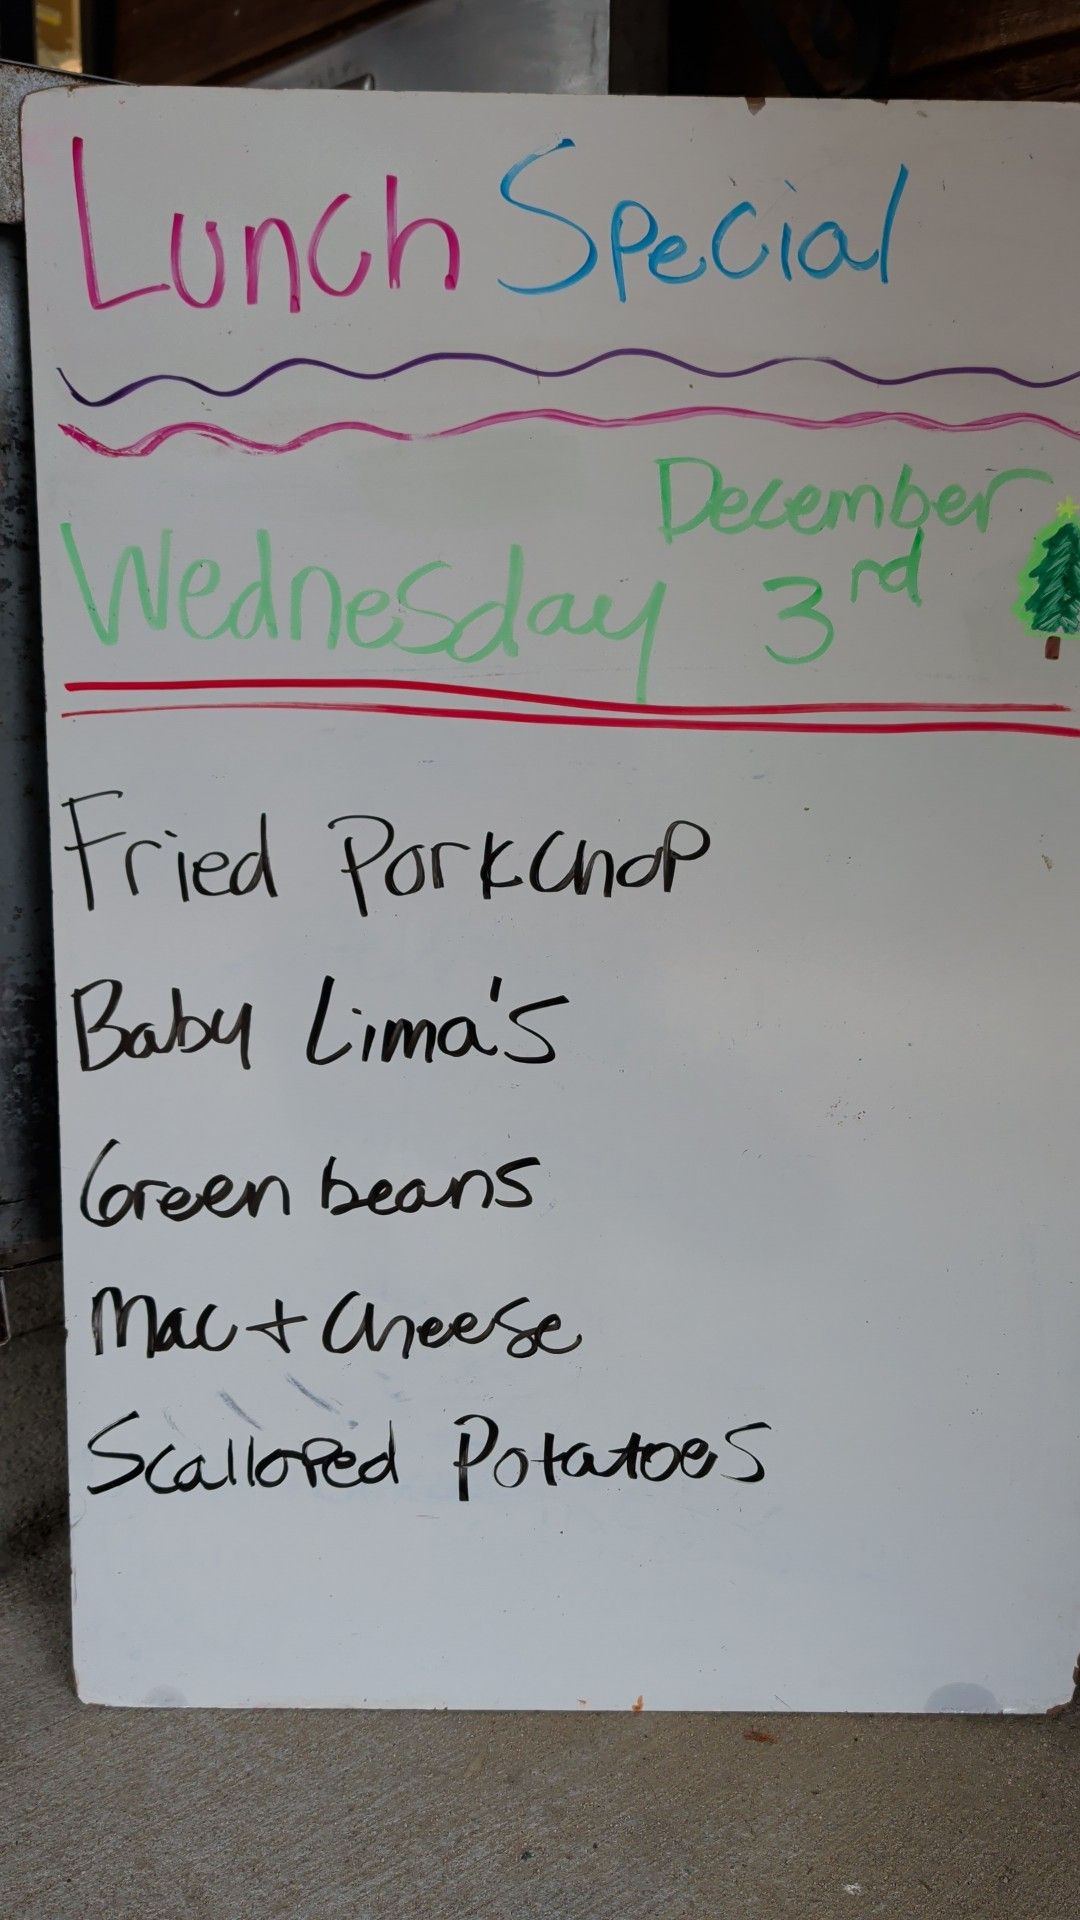 Lunch Special
December
Wednesday 3rd
Fried Porkchop
Baby Lima's
Green beans
Mac + Cheese
Scalloped Potatoes